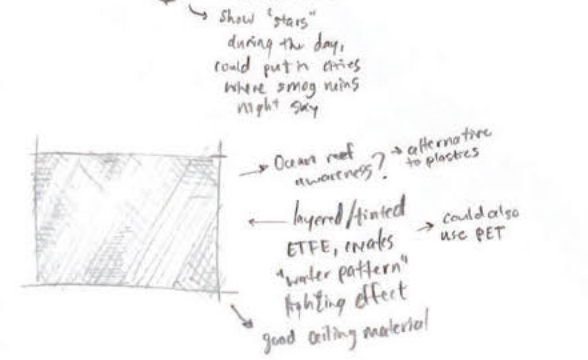 Show "stars"
during the day,
could put in cities
where smog ruins
night sky
Ocean reef
awareness?
alternative
to plastics
layered/tinted
ETFE, creates
"water pattern"
lighting effect
could also
use PET
good ceiling material